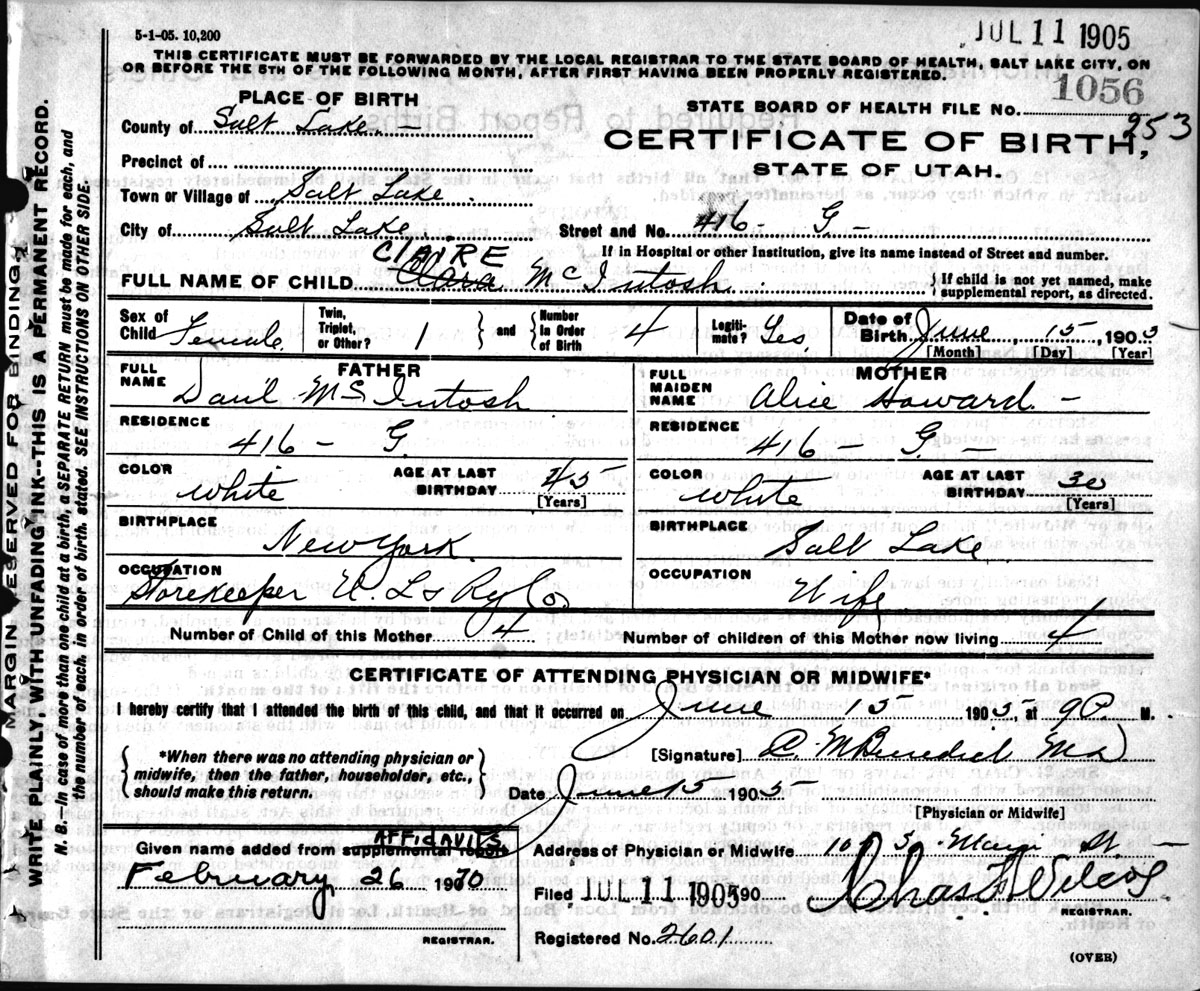 JUL 11 1905
5-1-05. 10,200
THIS CERTIFICATE MUST BE FORWARDED BY THE LOCAL REGISTRAR TO THE STATE BOARD OF HEALTH, SALT LAKE CITY, ON
OR BEFORE THE 5TH OF THE FOLLOWING MONTH, AFTER FIRST HAVING BEEN PROPERLY REGISTERED.
PLACE OF BIRTH
STATE BOARD OF HEALTH FILE No. 1056
253
County of Salt Lake -
CERTIFICATE OF BIRTH,
STATE OF UTAH.
Precinct of
Town or Village of Salt Lake
City of Salt Lake
Street and No. 416 - G. -
If in Hospital or other Institution, give its name instead of Street and number.
CLAIRE
FULL NAME OF CHILD Clara McIntosh
If child is not yet named, make
supplemental report, as directed.
Sex of Child Female
Twin, Triplet, or Other? 1
and Number in Order of Birth 4
Legitimate? Yes
Date of Birth June 15, 1905
[Month] [Day] [Year]
FATHER
FULL NAME Danl McIntosh
RESIDENCE 416 - G.
COLOR White
AGE AT LAST BIRTHDAY 45 [Years]
BIRTHPLACE New York
OCCUPATION Storekeeper U. L & Ry Co.
MOTHER
FULL MAIDEN NAME Alice Howard -
RESIDENCE 416 - G. -
COLOR White
AGE AT LAST BIRTHDAY 30 [Years]
BIRTHPLACE Salt Lake
OCCUPATION Wife
Number of Child of this Mother 4
Number of children of this Mother now living 4
CERTIFICATE OF ATTENDING PHYSICIAN OR MIDWIFE*
I hereby certify that I attended the birth of this child, and that it occurred on June 15 1905, at 9 P M.
*When there was no attending physician or
midwife, then the father, householder, etc.,
should make this return.
[Signature] C. M. Benedict MD
Date June 15 1905
[Physician or Midwife]
AFFIDAVITS
Given name added from supplemental report
February 26 1970
REGISTRAR.
Address of Physician or Midwife. 10 S. Main St -
Filed JUL 11 1905 90
Chas F Wilcox
REGISTRAR.
Registered No. 2601
(OVER)
MARGIN RESERVED FOR BINDING.
WRITE PLAINLY, WITH UNFADING INK--THIS IS A PERMANENT RECORD.
N. B.--In case of more than one child at a birth, a SEPARATE RETURN must be made for each, and
the number of each, in order of birth, stated. SEE INSTRUCTIONS ON OTHER SIDE.